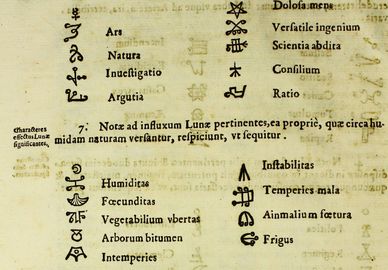 Ars
Natura
Inuestigatio
Argutia
Dolosa mens
Versatile ingenium
Scientia abdita
Consilium
Ratio
Characteres
effectus Lunæ
significantes.
7. Notæ ad influxum Lunæ pertinentes, ea propriè, quæ circa hu-
midam naturam versantur, respiciunt, vt sequitur.
Humiditas
Fœcunditas
Vegetabilium vbertas
Arborum bitumen
Intemperies
Instabilitas
Temperies mala
Ainmalium fœtura
Frigus